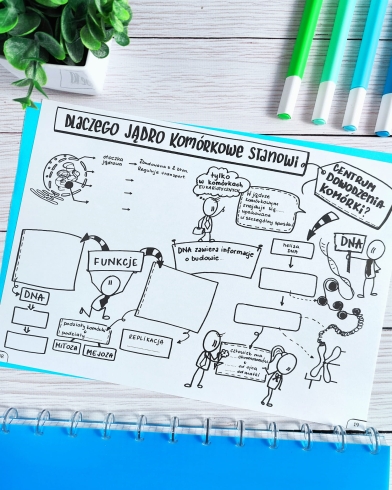 DLACZEGO JĄDRO KOMÓRKOWE STANOWI
CENTRUM
DOWODZENIA
KOMÓRKI?
otoczka
jądrowa
Zbudowana z 2 błon
Reguluje transport
tylko
w komórkach
EUKARIOTYCZNYCH
W jądrze
komórkowym
znajduje się
upakowana
w szczególny sposób
DNA zawiera informacje
o budowie
helisa
DNA
DNA
FUNKCJE
DNA
podziały komórki
podziału
MITOZA
MEJOZA
REPLIKACJA
człowiek ma
chromosomów
od ojca
od matki